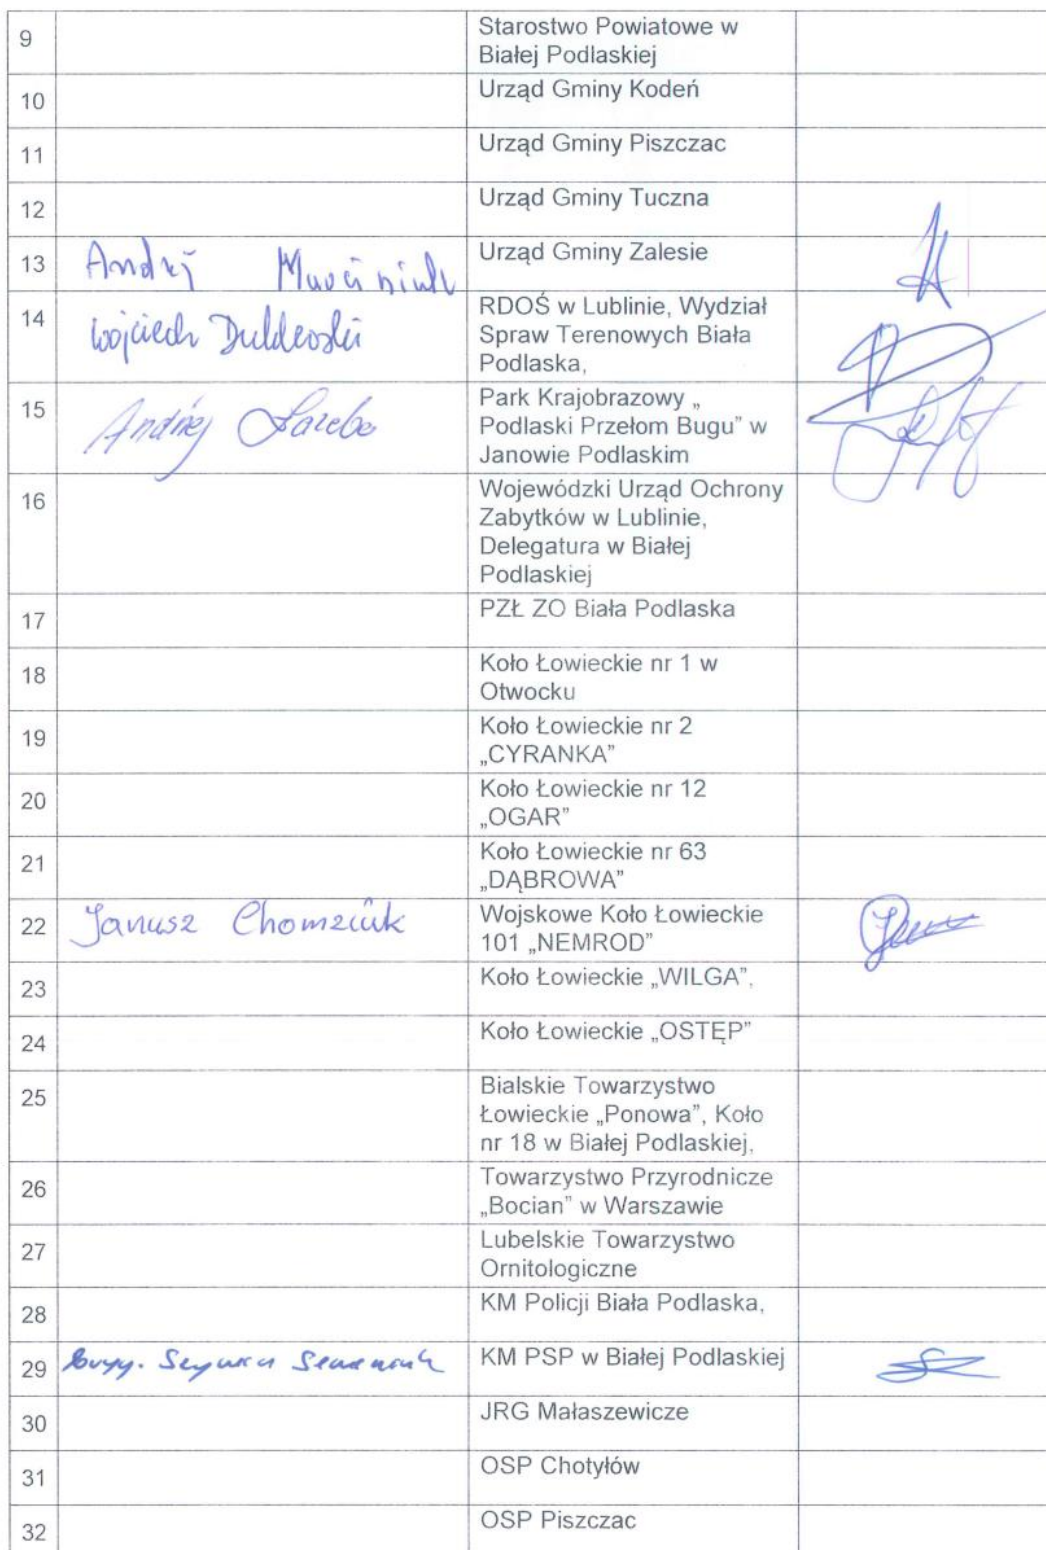 9 Starostwo Powiatowe w
Białej Podlaskiej
10 Urząd Gminy Kodeń
11 Urząd Gminy Piszczac
12 Urząd Gminy Tuczna
13 Andrzej Marciniuk Urząd Gminy Zalesie
14 Wojciech RDOŚ w Lublinie, Wydział
Spraw Terenowych Biała
Podlaska,
15 Andrzej Park Krajobrazowy „
Podlaski Przełom Bugu” w
Janowie Podlaskim
16 Wojewódzki Urząd Ochrony
Zabytków w Lublinie,
Delegatura w Białej
Podlaskiej
17 PZŁ ZO Biała Podlaska
18 Koło Łowieckie nr 1 w
Otwocku
19 Koło Łowieckie nr 2
„CYRANKA”
20 Koło Łowieckie nr 12
„OGAR”
21 Koło Łowieckie nr 63
„DĄBROWA”
22 Janusz Chomziuk Wojskowe Koło Łowieckie
101 „NEMROD”
23 Koło Łowieckie „WILGA”,
24 Koło Łowieckie „OSTĘP”
25 Bialskie Towarzystwo
Łowieckie „Ponowa”, Koło
nr 18 w Białej Podlaskiej,
26 Towarzystwo Przyrodnicze
„Bocian” w Warszawie
27 Lubelskie Towarzystwo
Ornitologiczne
28 KM Policji Biała Podlaska,
29 KM PSP w Białej Podlaskiej
30 JRG Małaszewicze
31 OSP Chotyłów
32 OSP Piszczac